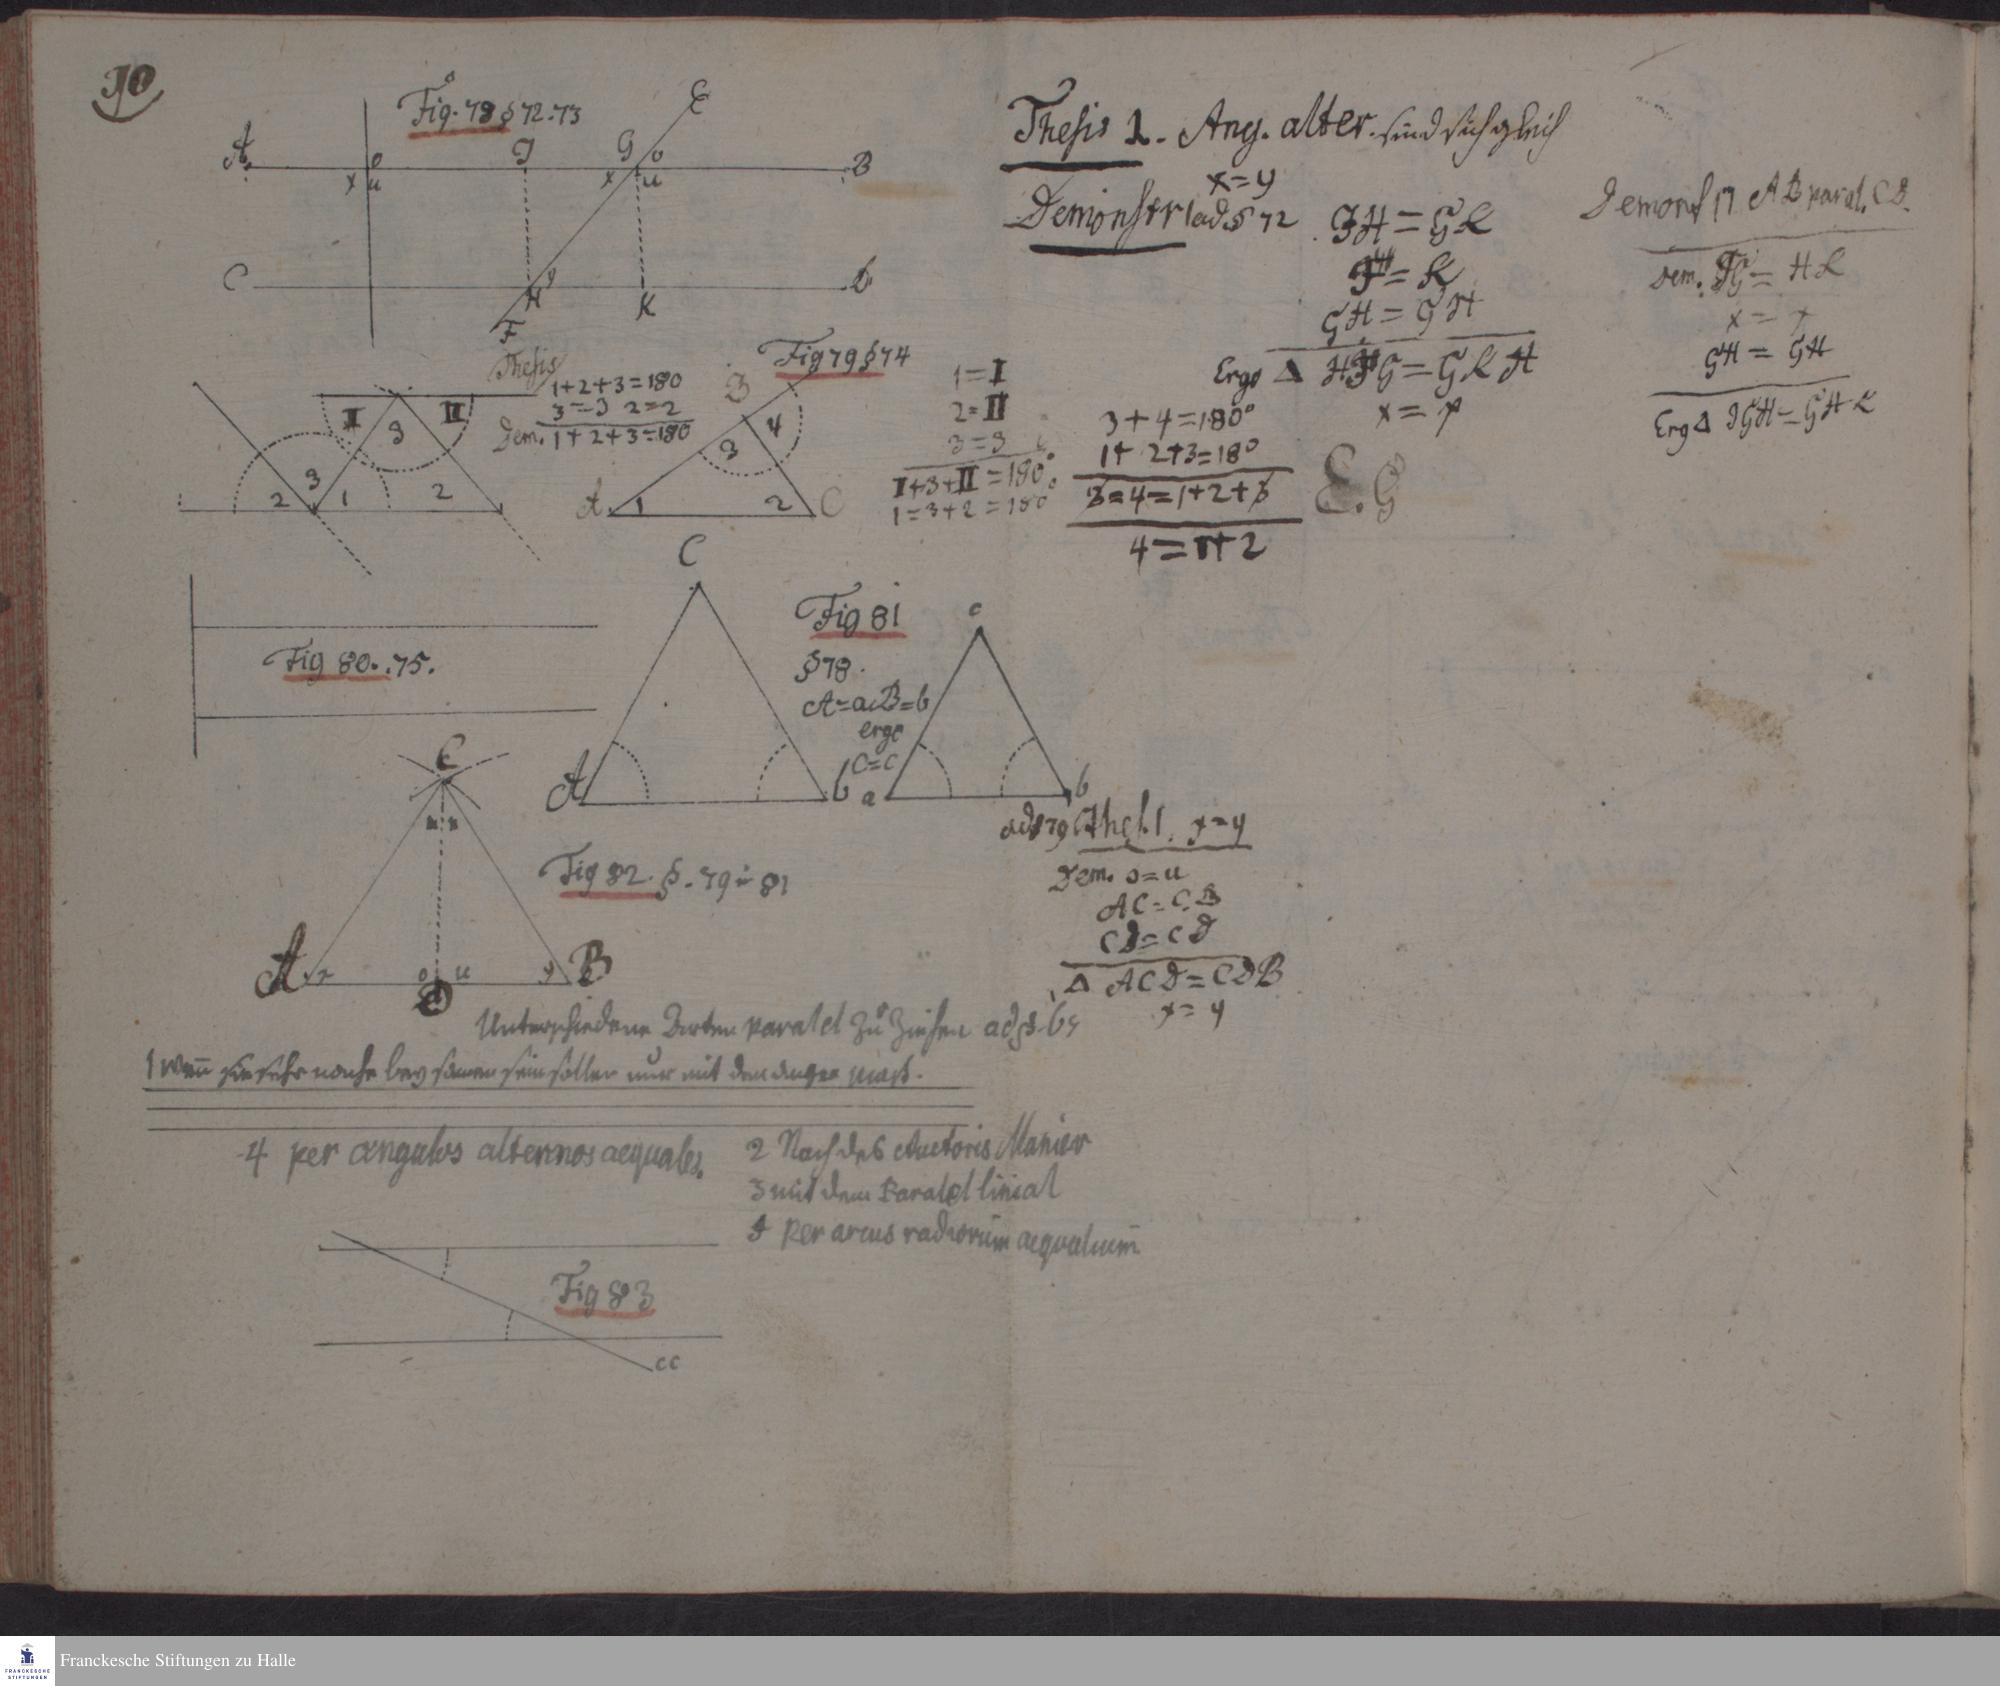 10
Fig. 78 § 72.73
E
A
o
J
G
o
B
x
u
x
u
C
y
b
H
K
F
Thesis 1. Ang. alter. sind sich gleich
x=y
Demonstr ad § 72
JH = GK
J = K
GH = GH
Ergo Δ HJG = GKH
x = y
AB paral. CD.
Dem. JG = HK
x = y
GH = GH
Erg Δ JGH = GHK
Thesis
1+2+3=180
3=3 2=2
Dem. 1+2+3=180
I
3
II
2
3
1
2
Fig 79 § 74
B
4
3
A
1
2
C
1=I
2=II
3=3
I+3+II=180°
1=3+2=180°
3+4=180°
1+2+3=180
3=4=1+2+3
4=1+2
E.G
Fig 80. .75.
C
Fig 81
§78.
A=a B=b
ergo
C=c
c
A
b
a
b
C
Fig 82. §. 79 81
A
x
o
u
y
B
D
ad § 79 Thes. 1. x=y
Dem. o=u
AC=CB
CD=CD
Δ ACD=CDB
x=y
Unterschiedene Arten paralel zu ziehen ad §.
1 Wen sie sehr nahe bey samen sein sollen nur mit dem augen mass.
4 per angulos alternos aequales.
2 Nach des Auctoris Manier
3 mit dem Paralel linial
per arcus radiorum aequalium
Fig 83
cc
Franckesche Stiftungen zu Halle
FRANCKESCHE
STIFTUNGEN